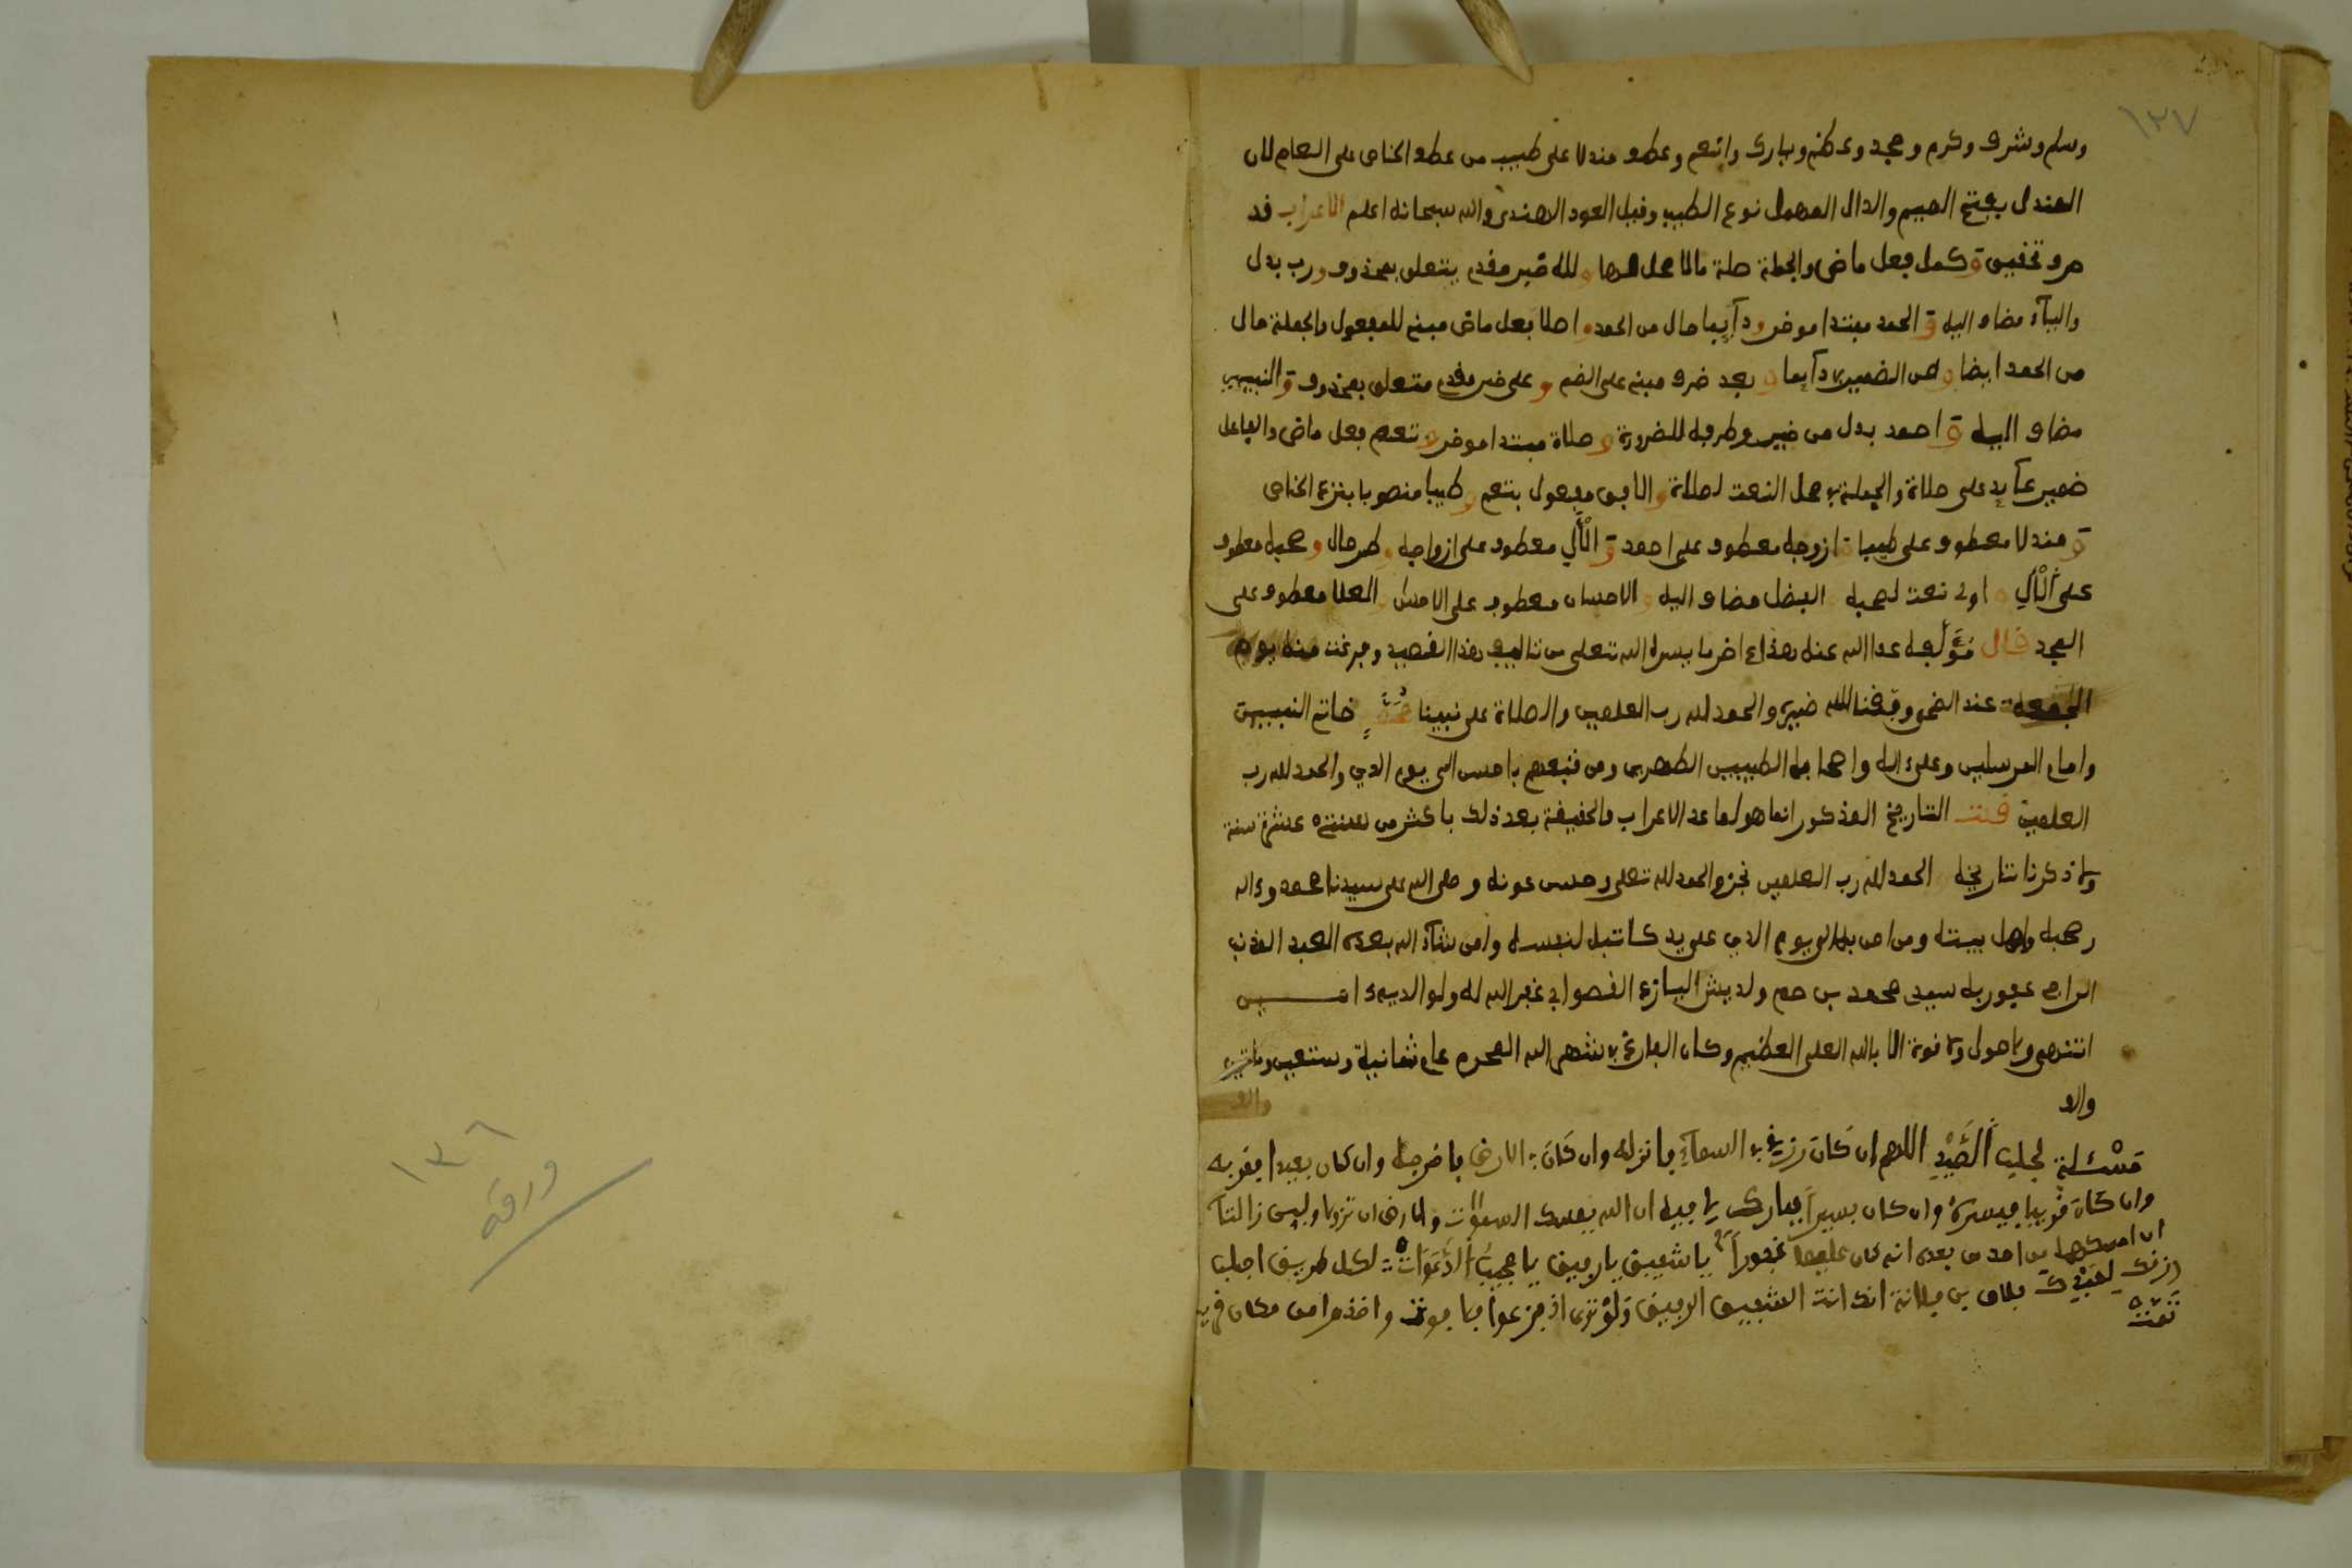 ١٣٧
وسلم وشرف وكرم ومجد وعظم وبارك وانعم وعطف مندلا على طيب من عطف الخاص على العام لان
المندل بفتح الميم والدال المهمل نوع الطيب وقيل العود الهندي والله سبحانه اعلم الاعراب قد
حرف تحقيق و كمل فعل ماض والجملة صلة ما لا محل لها و لله خبر مقدم يتعلق بمحذوف و رب بدل
والياء مضاف اليه و الحمد مبتدا موخر و دآيما حال من الحمد و فعل ماض مبني للمفعول والجملة حال
من الحمد ايضا و دآيما و بعد ظرف مبني على الضم و على خبر مقدم متعلق بمحذوف و النبيين
مضاف اليه و احمد بدل من خير للضرورة و صلاة مبتدا موخر و تنعم فعل ماض والفاعل
ضمير عآيد على صلاة والجملة في محل النعت لصلاة و الافق مفعول بتنعم و طيبا منصوبا بنزع الخافض
و مندلا معطوف على طيبا و ازوجه معطوف على احمد و الآل معطوف على ازواجه و طر حال و صحبه معطوف
على الآل و اولي نعت لصحبه الفضل مضاف اليه و الاحسان معطوف على العلا معطوف على
المجد قال مؤلفه عفا الله عنه هذا اخر ما يسره الله تعلى من تاليف هذا القصيد وفرغت منه يوم
الجمعة عند الضحى وفقنا الله خيره والحمد لله رب العلمين والصلاة على نبينا محمد خاتم النبيين
وامام المرسلين وعلى اله واصحابه الطيبين الطهرين ومن تبعهم باحسن الى يوم الدين والحمد لله رب
العلمين قلت التاريخ المذكور انما هو لما عد الاعراب والحقيقة بعد ذلك باكثر من ستة عشرة سنة
ذكرنا تاريخه الحمد لله رب العلمين نجز والحمد لله تعلى وحسن عونه وصلى الله على سيدنا محمد وءاله
وصحبه واهل بيته ومن امن به الى يوم الدين على يد كاتبه لنفسه ولمن شآء الله بعده العبد المذنب
الراجي عفو ربه سعيد محمد بن حم غفر الله له ولوالديه ءامـــين
انتهى ولا حول ولا قوة الا بالله العلي العظيم وكان الفارغ في شهر الله المحرم عام ثمانية وستين ومايتين
والف
والف
مسئلة لجلب الصيد اللهم ان كان رزقي في السمآء فانزله وان كان في الارض فاخرجه وان كان بعيدا فقربه
وان كان قريبا فيسره وان كان يسيرا فبارك لي فيه ان الله يمسك السموات والارض ان تزولا وليين زالتآ
ان امسكهما من احد من بعده انه كان حليما غفورا يا شفيق يا رفيق يا مجيب الدعوات لكل طريق اجلب
ارزقك لعبدك فلان بن فلانة انك انت الشفيق الرفيق ولو ترى اذ فزعوا فلا فوت واخذوا من مكان قريب
تمت
١٣٦
ورقه